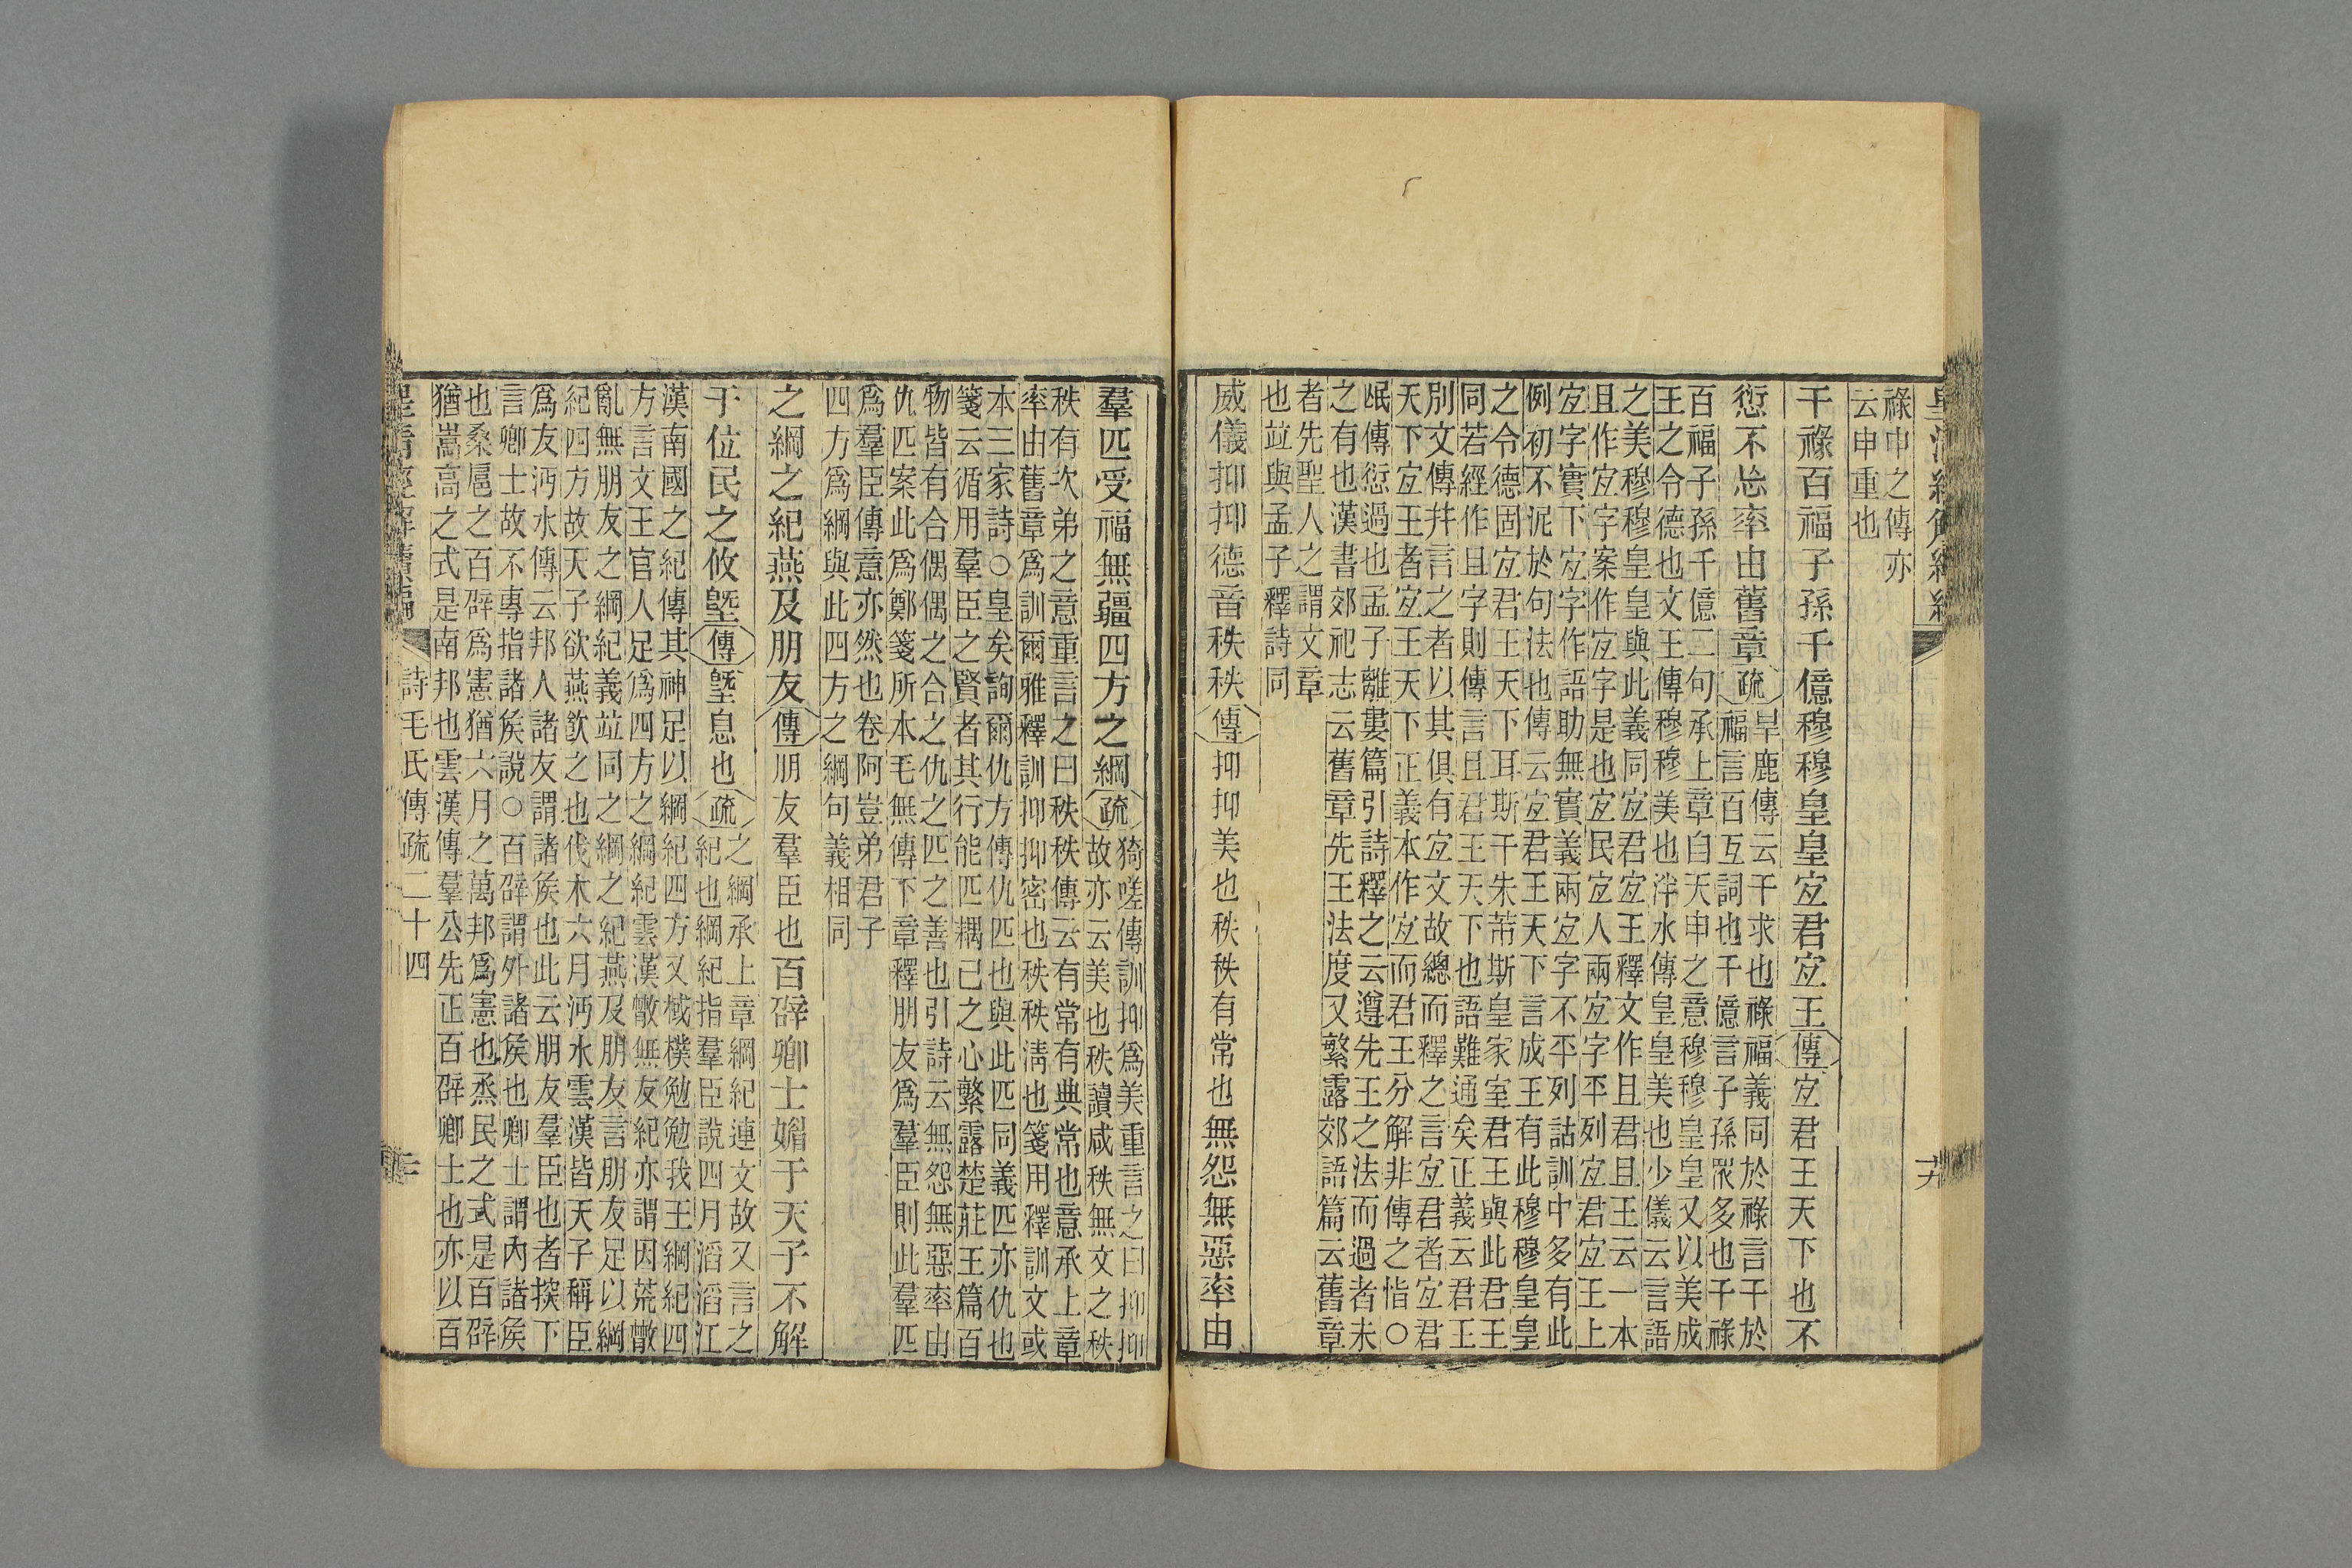 皇清經解續編
十九
祿申之傳亦
云申重也
干祿百福子孫千億穆穆皇皇宐君宐王傳宐君王天下也不
愆不忘率由舊章疏
旱鹿傳云干求也祿福義同於祿言干於
福言百互詞也千億言子孫眾多也干祿
百福子孫千億二句承上章自天申之意穆穆皇皇又以美成
王之令德也文王傳穆穆美也泮水傳皇皇美也少儀云言語
之美穆穆皇皇與此義同宐君宐王釋文作且君且王云一本
且作宐字案作宐字是也宐民宐人兩宐字平列宐君宐王上
宐字實下宐字作語助無實義兩宐字不平列詁訓中多有此
例初不泥於句法也傳云宐君王天下言成王有此穆穆皇皇
之令德固宐君王天下耳斯干朱芾斯皇家室君王與此君王
同若經作且字則傳言且君王天下也語難通矣正義云君王
別文傳幷言之者以其俱有宐文故總而釋之言宐君者宐君
天下宐王者宐王天下正義本作宐而君王分解非傳之恉○
岷傳愆過也孟子離婁篇引詩釋之云遵先王之法而過者未
之有也漢書郊祀志云舊章先王法度又繁露郊語篇云舊章
者先聖人之謂文章
也竝與孟子釋詩同
威儀抑抑德音秩秩傳抑抑美也秩秩有常也無怨無惡率由
羣匹受福無疆四方之綱疏
猗嗟傳訓抑爲美重言之曰抑抑
故亦云美也秩讀咸秩無文之秩
秩有次弟之意重言之曰秩秩傳云有常有典常也意承上章
率由舊章爲訓爾雅釋訓抑抑密也秩秩淸也箋用釋訓文或
本三家詩○皇矣詢爾仇方傳仇匹也與此匹同義匹亦仇也
箋云循用羣臣之賢者其行能匹耦己之心繁露楚莊王篇百
物皆有合偶偶之合之仇之匹之善也引詩云無怨無惡率由
仇匹案此爲鄭箋所本毛無傳下章釋朋友爲羣臣則此羣匹
爲羣臣傳意亦然也卷阿豈弟君子
四方爲綱與此四方之綱句義相同
之綱之紀燕及朋友傳朋友羣臣也百辟卿士媚于天子不解
于位民之攸墍傳墍息也疏
之綱承上章綱紀連文故又言之
紀也綱紀指羣臣說四月滔滔江
漢南國之紀傳其神足以綱紀四方又棫樸勉勉我王綱紀四
方言文王官人足爲四方之綱紀雲漢散無友紀亦謂因荒散
亂無朋友之綱紀義竝同之綱之紀燕及朋友言朋友足以綱
紀四方故天子欲燕飮之也伐木六月沔水雲漢皆天子稱臣
爲友沔水傳云邦人諸友謂諸矦也此云朋友羣臣也者探下
言卿士故不專指諸矦說○百辟謂外諸矦也卿士謂內諸矦
也桑扈之百辟爲憲猶六月之萬邦爲憲也烝民之式是百辟
猶嵩高之式是南邦也雲漢傳羣公先正百辟卿士也亦以百
皇清經解續編
詩毛氏傳疏二十四